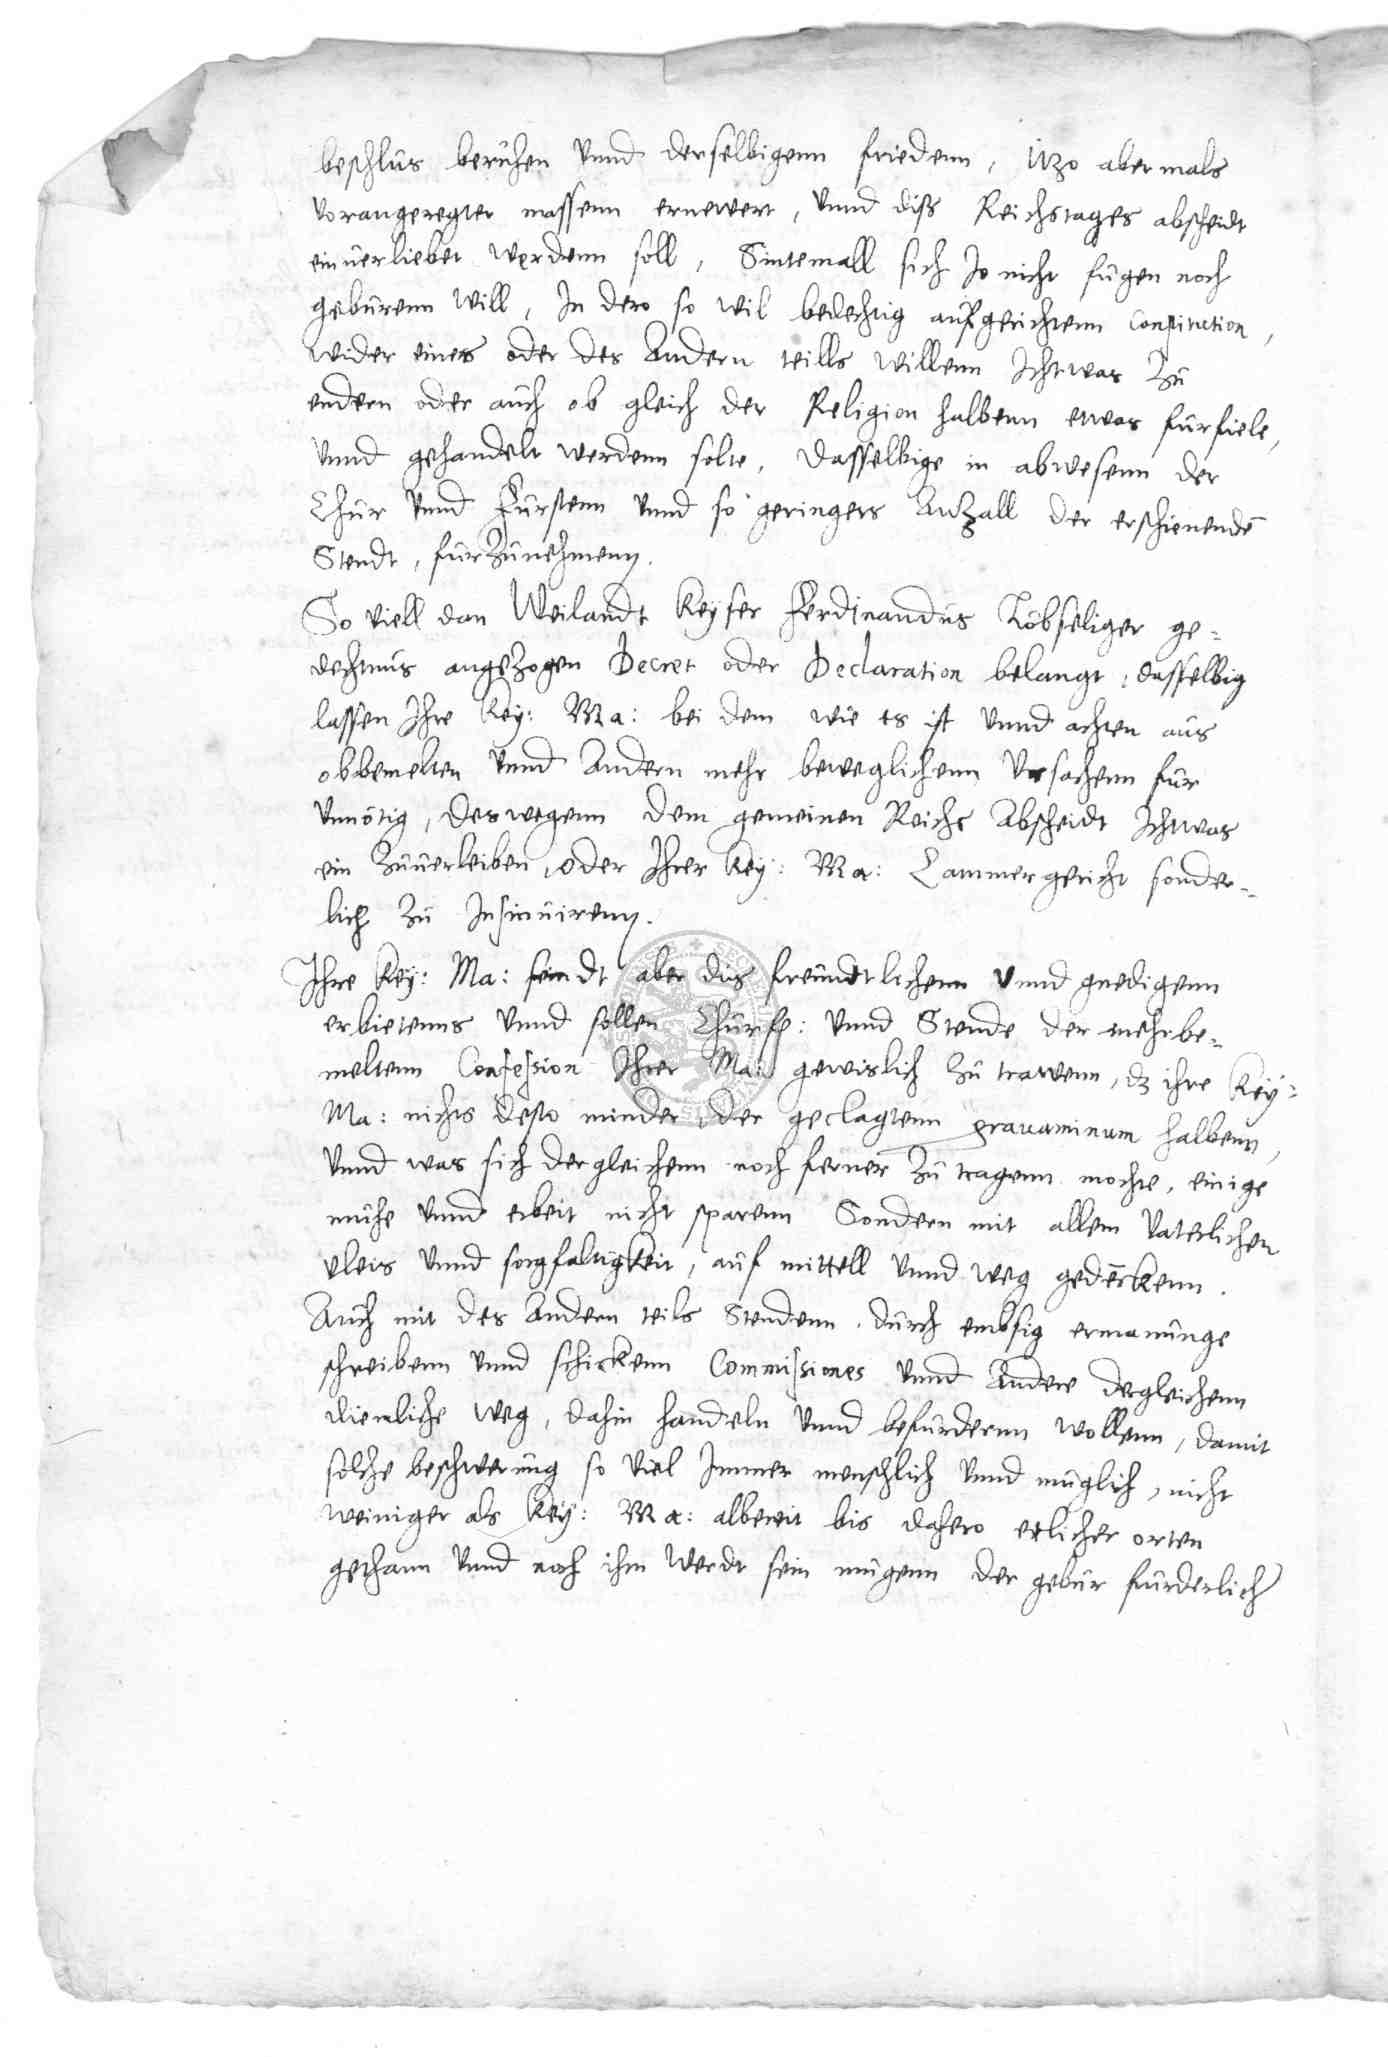 beschlus beruhen vnnd derselbigenn friedenn, Itzo abermals
vorangeregter massenn ernewert, vnnd diß Reichstages abscheidt
einuerliebet werdenn soll, Sintemall sich Jo nicht fugen noch
geburenn will, In dero so wil bedechtig aufgerichtenn Constitution,
wider eines oder des Andern teills willenn Ichtwas Zu
endern oder auch ob gleich der Religion halbenn etwas furfiele,
vnnd gehandelt werdenn solte, dasselbige in abwesenn der
Chur vnnd Furstenn vnnd so geringers Anzall der erschienendē
Stendt, fur Zunehmenn.
So viell dan Weilandt Keyser Ferdinandus Lobseliger ge-
dechtnus angezogen Decret oder Declaration belangt, dasselbig
lassen Ihre Key: Ma: bei dem wie es ist vnnd achten aus
obbemelten vnnd Andern mehr beweglichenn Vrsachenn fur
vnnötig, deswegenn dem gemeinen Reichs Abscheidt Ichtwas
ein Zuuerleiben, oder Ihrer Key: Ma: Cammergericht sonder-
lich Zu Insinuirenn.
Ihre Key: Ma: seindt aber des freundtlichenn vnnd gnedigenn
erbietenns vnnd sollen Churf: vnnd Stende der mehrbe-
meltenn Confession Ihrer Ma: gewislich Zu trawenn, dz ihre Key:
Ma: nichts desto minder, der geclagtenn grauaminum halbenn,
vnnd was sich dergleichenn noch ferner Zu tragenn mochte, einige
muhe vnnd erbeit nicht sparenn Sondern mit allem Vaterlichen
vleis vnnd sorgfaltigkeit, auf mittell vnnd weg gedēckenn.
Auch mit des Andern teils Stendenn durch embsig ermanunge
schreibenn vnnd schickenn Commissiones vnnd Andere dergleichenn
dienliche weg, dahin handeln vnnd befurdernn wollenn, damit
solche beschwerung so viel Immer menschlich vnnd muglich, nicht
weiniger als Key: Ma: albereit bis dahero etlicher orten
gethann vnnd noch ihm Werdt sein mugenn der gebur furderlich